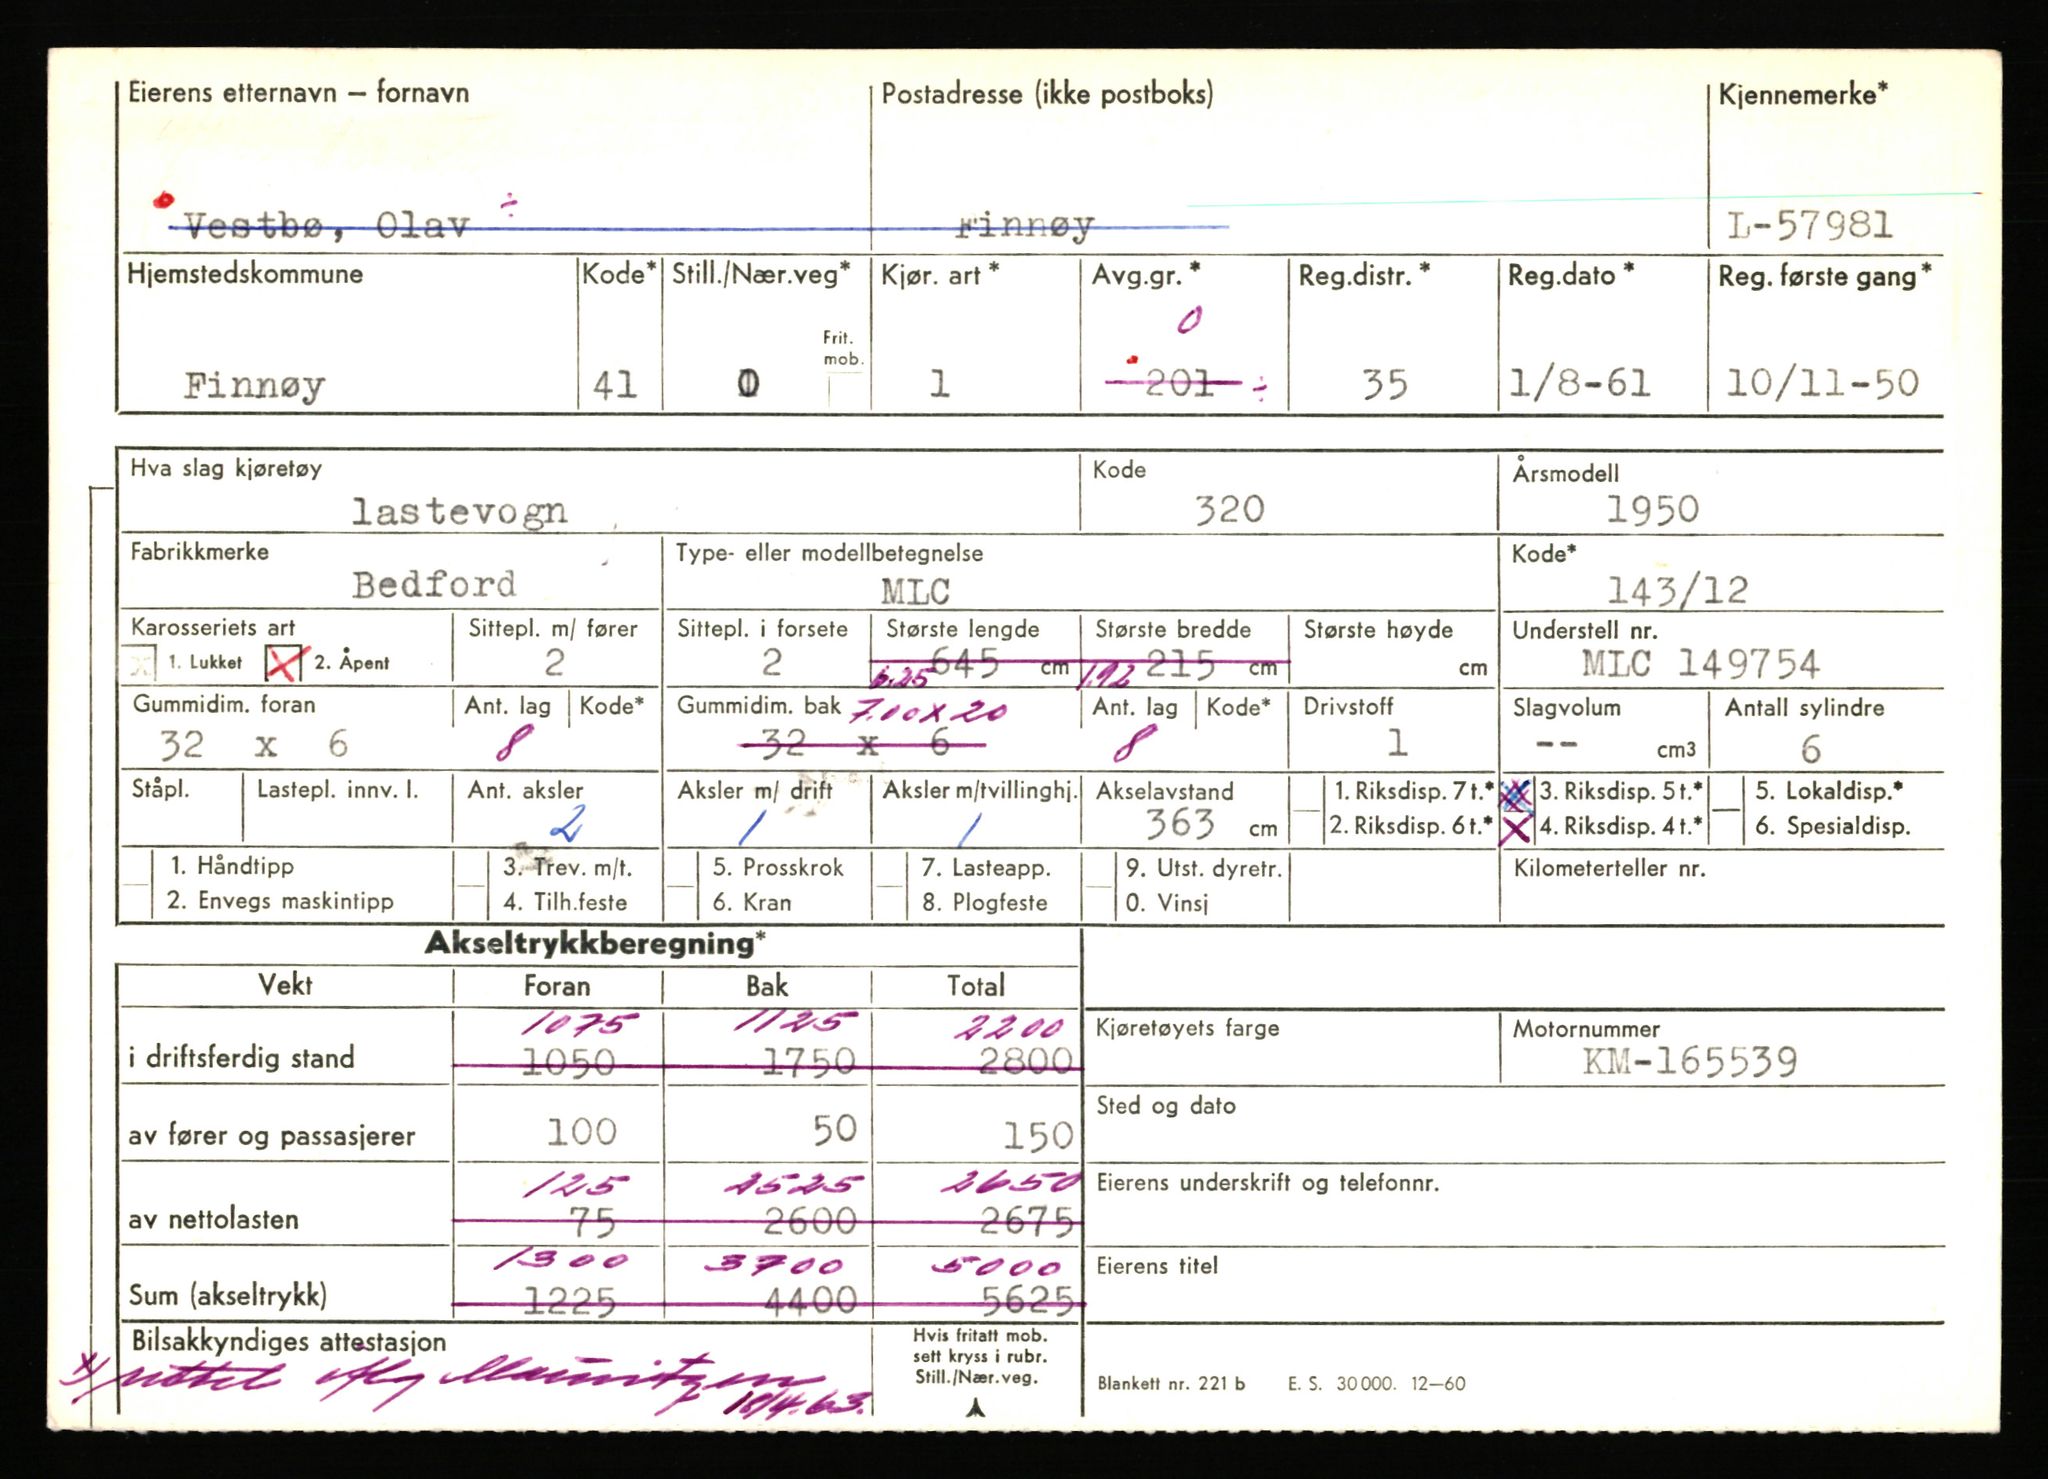 Eierens etternavn – fornavn Postadresse (ikke postboks) Kjennemerke*
Vestbø, Olav ÷ Finnøy L-57981
Hjemstedskommune Kode* Still./Nær.veg* Kjør. art* Avg.gr.* Reg.distr.* Reg.dato* Reg. første gang*
0
Frit. mob.
Finnøy 41 0 1 201 ÷ 35 1/8-61 10/11-50
Hva slag kjøretøy Kode Årsmodell
lastevogn 320 1950
Fabrikkmerke Type- eller modellbetegnelse Kode*
Bedford MLC 143/12
Karosseriets art Sittepl. m/ fører Sittepl. i forsete Største lengde Største bredde Største høyde Understell nr.
x 1. Lukket X 2. Åpent 2 2 645 cm 215 cm cm MLC 149754
6.25 1.92
Gummidim. foran Ant. lag Kode* Gummidim. bak 7.00 x 20 Ant. lag Kode* Drivstoff Slagvolum Antall sylindre
32 x 6 8 32 x 6 8 1 -- cm3 6
Ståpl. Lastepl. innv. l. Ant. aksler Aksler m/ drift Aksler m/tvillinghj. Akselavstand 1. Riksdisp. 7 t.* X 3. Riksdisp. 5 t.* 5. Lokaldisp.*
2 1 1 363 cm 2. Riksdisp. 6 t.* X 4. Riksdisp. 4 t.* 6. Spesialdisp.
1. Håndtipp 3. Trev. m/t. 5. Prosskrok 7. Lasteapp. 9. Utst. dyretr. Kilometerteller nr.
2. Envegs maskintipp 4. Tilh.feste 6. Kran 8. Plogfeste 0. Vinsj
Akseltrykkberegning*
Vekt Foran Bak Total
1075 1125 2200
i driftsferdig stand 1050 1750 2800
Kjøretøyets farge Motornummer
KM-165539
av fører og passasjerer 100 50 150
Sted og dato
125 2525 2650
av nettolasten 75 2600 2675
Eierens underskrift og telefonnr.
1300 3700 5000
Sum (akseltrykk) 1225 4400 5625
Eierens titel
Bilsakkyndiges attestasjon
x/ 18/4.63.
Hvis fritatt mob.
sett kryss i rubr.
Still./Nær.veg.
Blankett nr. 221 b E. S. 30 000. 12–60